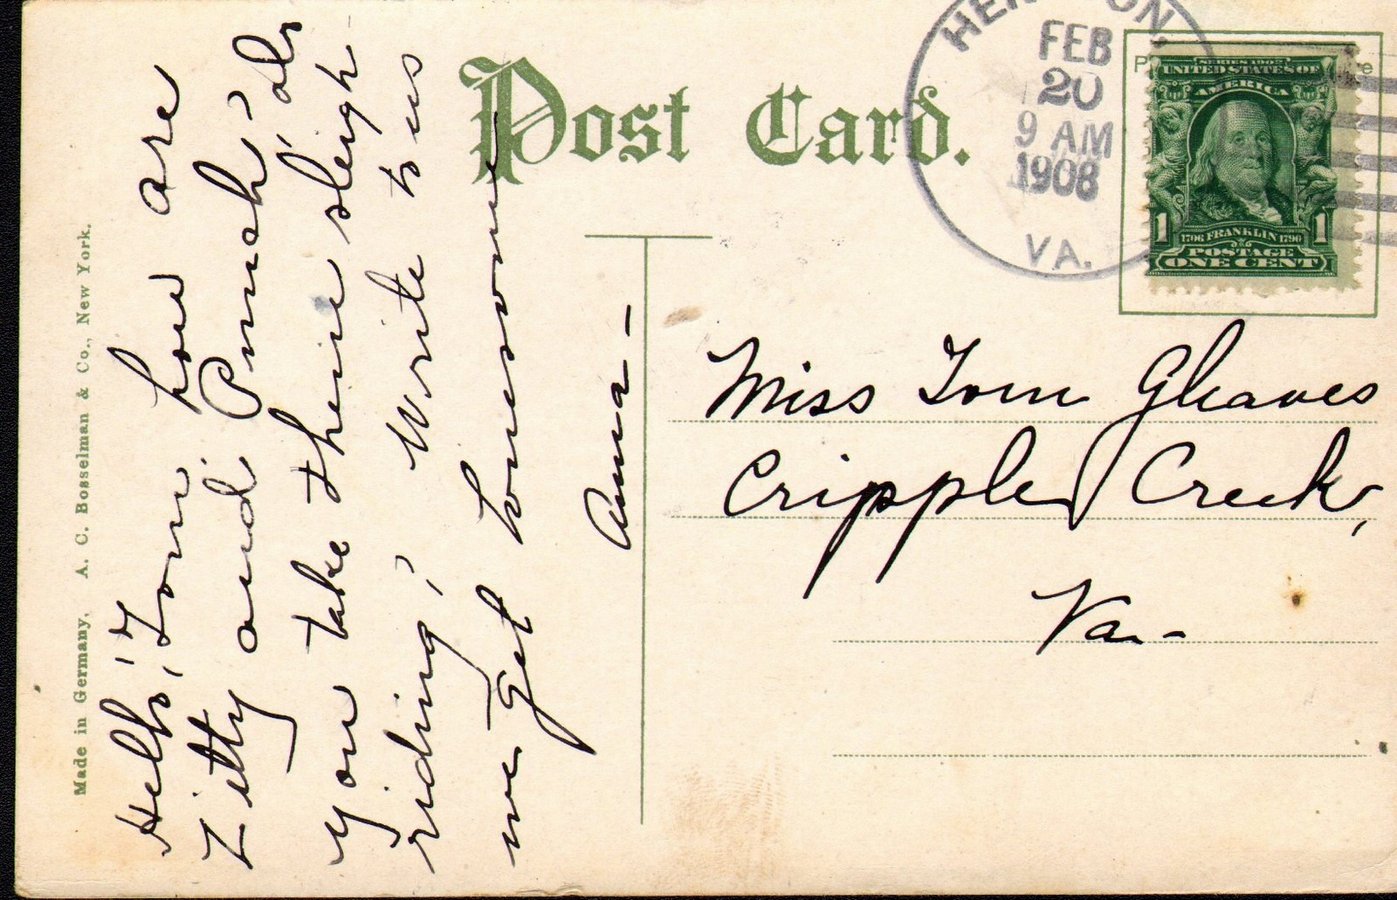 Post Card.
FEB
20
9 AM
1908
VA.
SERIES 1902
UNITED STATES OF
AMERICA
1 1
1706 FRANKLIN 1790
POSTAGE
ONE CENT
Made in Germany. A. C. Bosselman & Co., New York.
Hello, Tom, how are
and "Pumch", do
you take them sleigh-
riding? Write to us
we get lonesome
Anna -
Miss Tom Gleaves
Cripple Creek,
Va. -